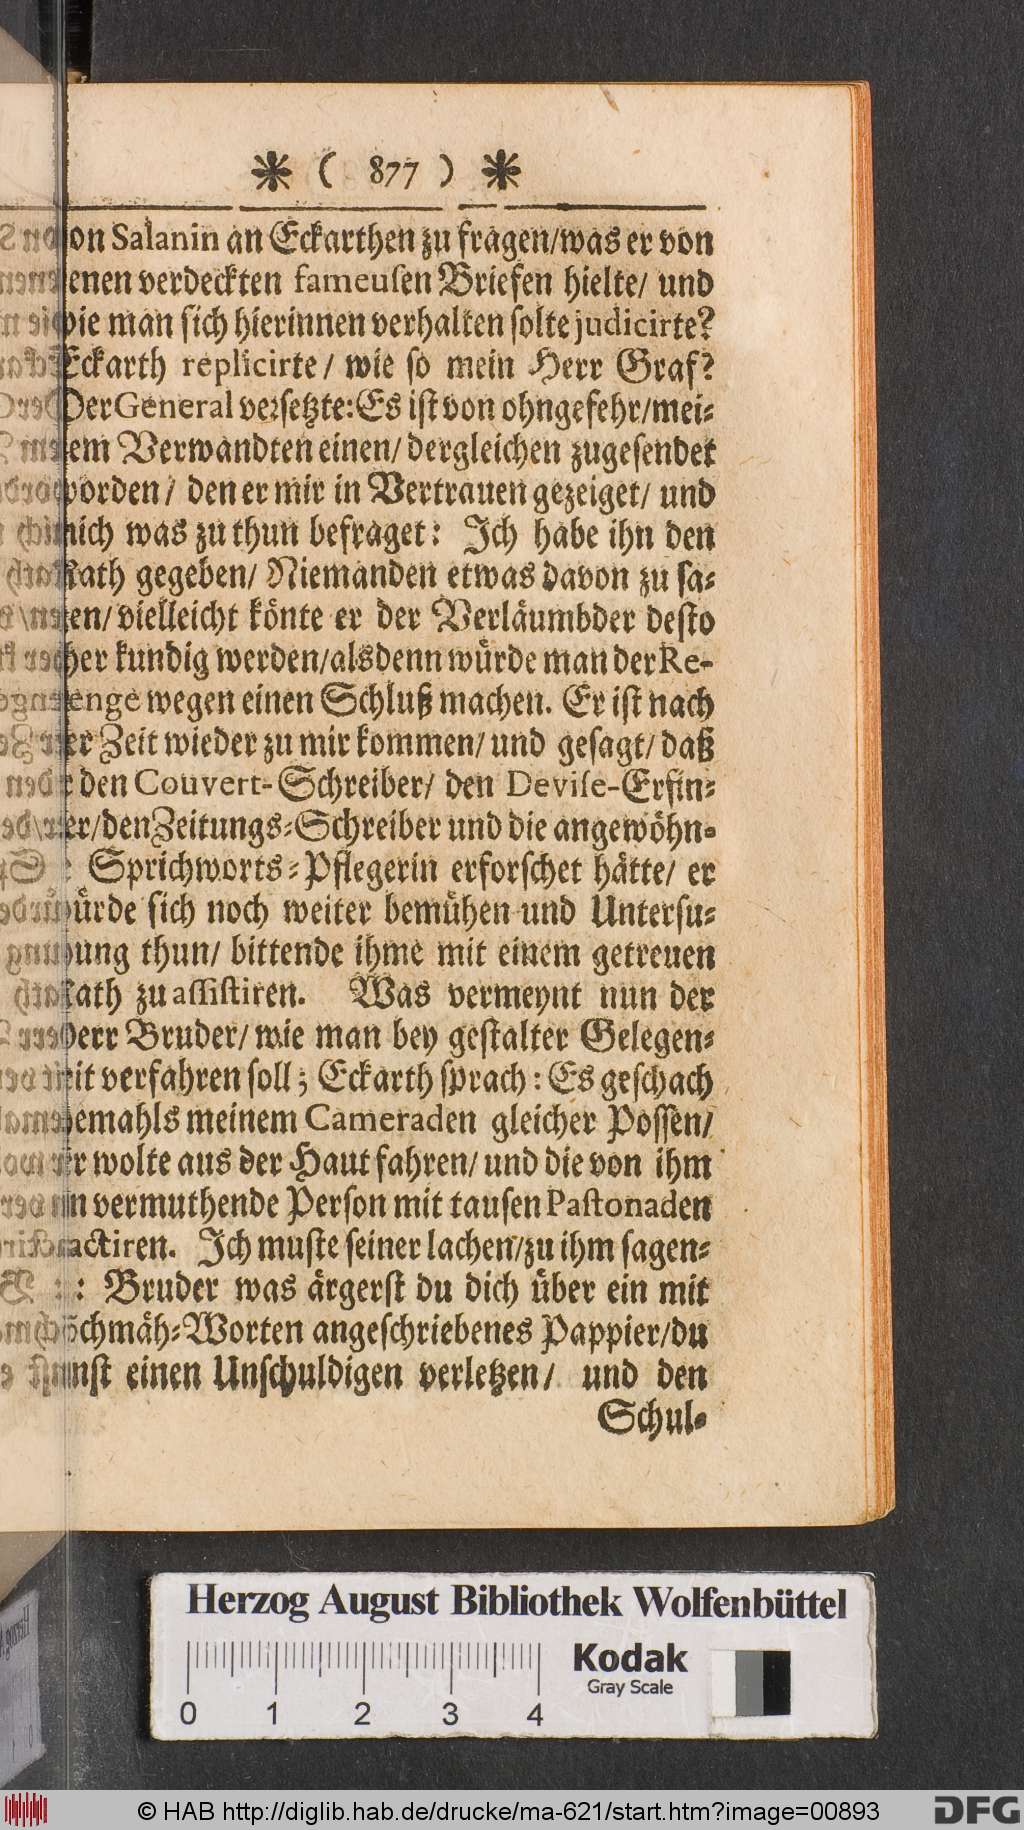 * ( 877 ) *
von Salanin an Eckarthen zu fragen/was er von
denen verdeckten fameusen Briefen hielte/ und
wie man sich hierinnen verhalten solte judicirte?
Eckarth replicirte/ wie so mein Herr Graf?
Der General versetzte: Es ist von ohngefehr/mei-
nem Verwandten einen/ dergleichen zugesendet
worden/ den er mir in Vertrauen gezeiget/ und
mich was zu thun befraget: Ich habe ihn den
Rath gegeben/ Niemanden etwas davon zu sa-
gen/ vielleicht könte er der Verläumbder desto
eher kundig werden/alsdenn würde man der Re-
venge wegen einen Schluß machen. Er ist nach
der Zeit wieder zu mir kommen/ und gesagt/ daß
er den Couvert-Schreiber/ den Devise-Erfin-
der/den Zeitungs-Schreiber und die angewöhn-
te Sprichworts-Pflegerin erforschet hätte/ er
würde sich noch weiter bemühen und Untersu-
chung thun/ bittende ihme mit einem getreuen
Rath zu assistiren. Was vermeynt nun der
Herr Bruder/ wie man bey gestalter Gelegen-
heit verfahren soll; Eckarth sprach: Es geschach
jemahls meinem Cameraden gleicher Possen/
er wolte aus der Haut fahren/ und die von ihm
in vermuthende Person mit tausen Pastonaden
tractiren. Ich muste seiner lachen/zu ihm sagen-
de: Bruder was ärgerst du dich über ein mit
Schmäh-Worten angeschriebenes Pappier/du
kanst einen Unschuldigen verletzen/ und den
Schul-
Herzog August Bibliothek Wolfenbüttel
0 1 2 3 4
Kodak
Gray Scale
© HAB http://diglib.hab.de/drucke/ma-621/start.htm?image=00893
DFG